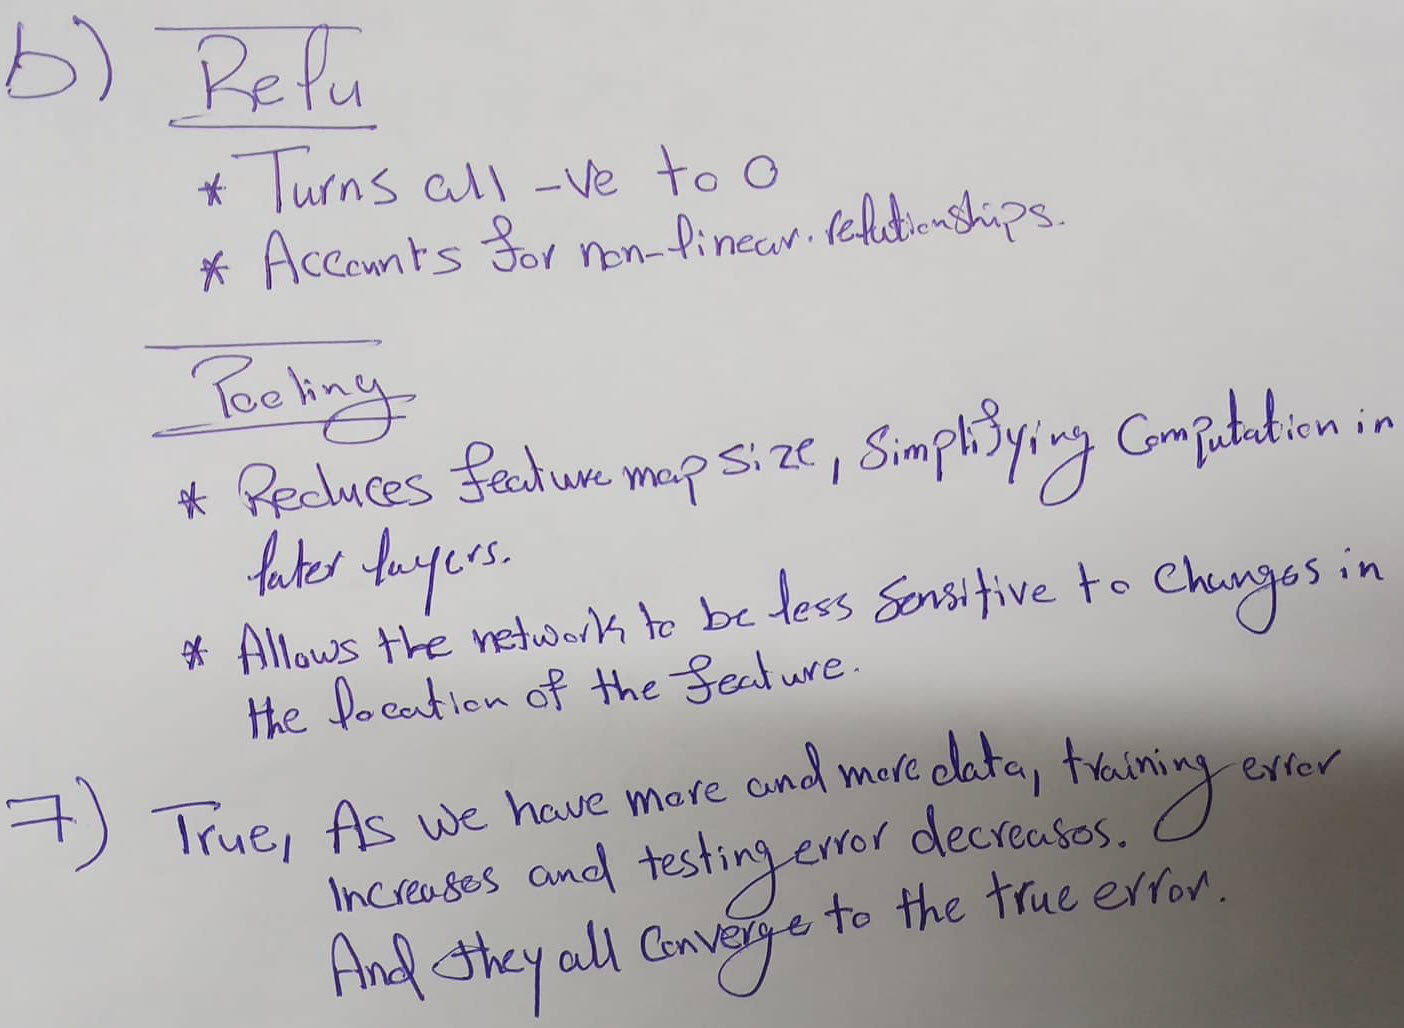 b) Relu
* Turns all -ve to 0
* Accounts for non-linear. relationships.
Pooling
* Reduces feature map size, Simplifying Computation in
later layers.
* Allows the network to be less Sensitive to Changes in
the location of the feature.
7) True, As we have more and more data, training error
Increases and testing error decreases.
And they all Converge to the true error.